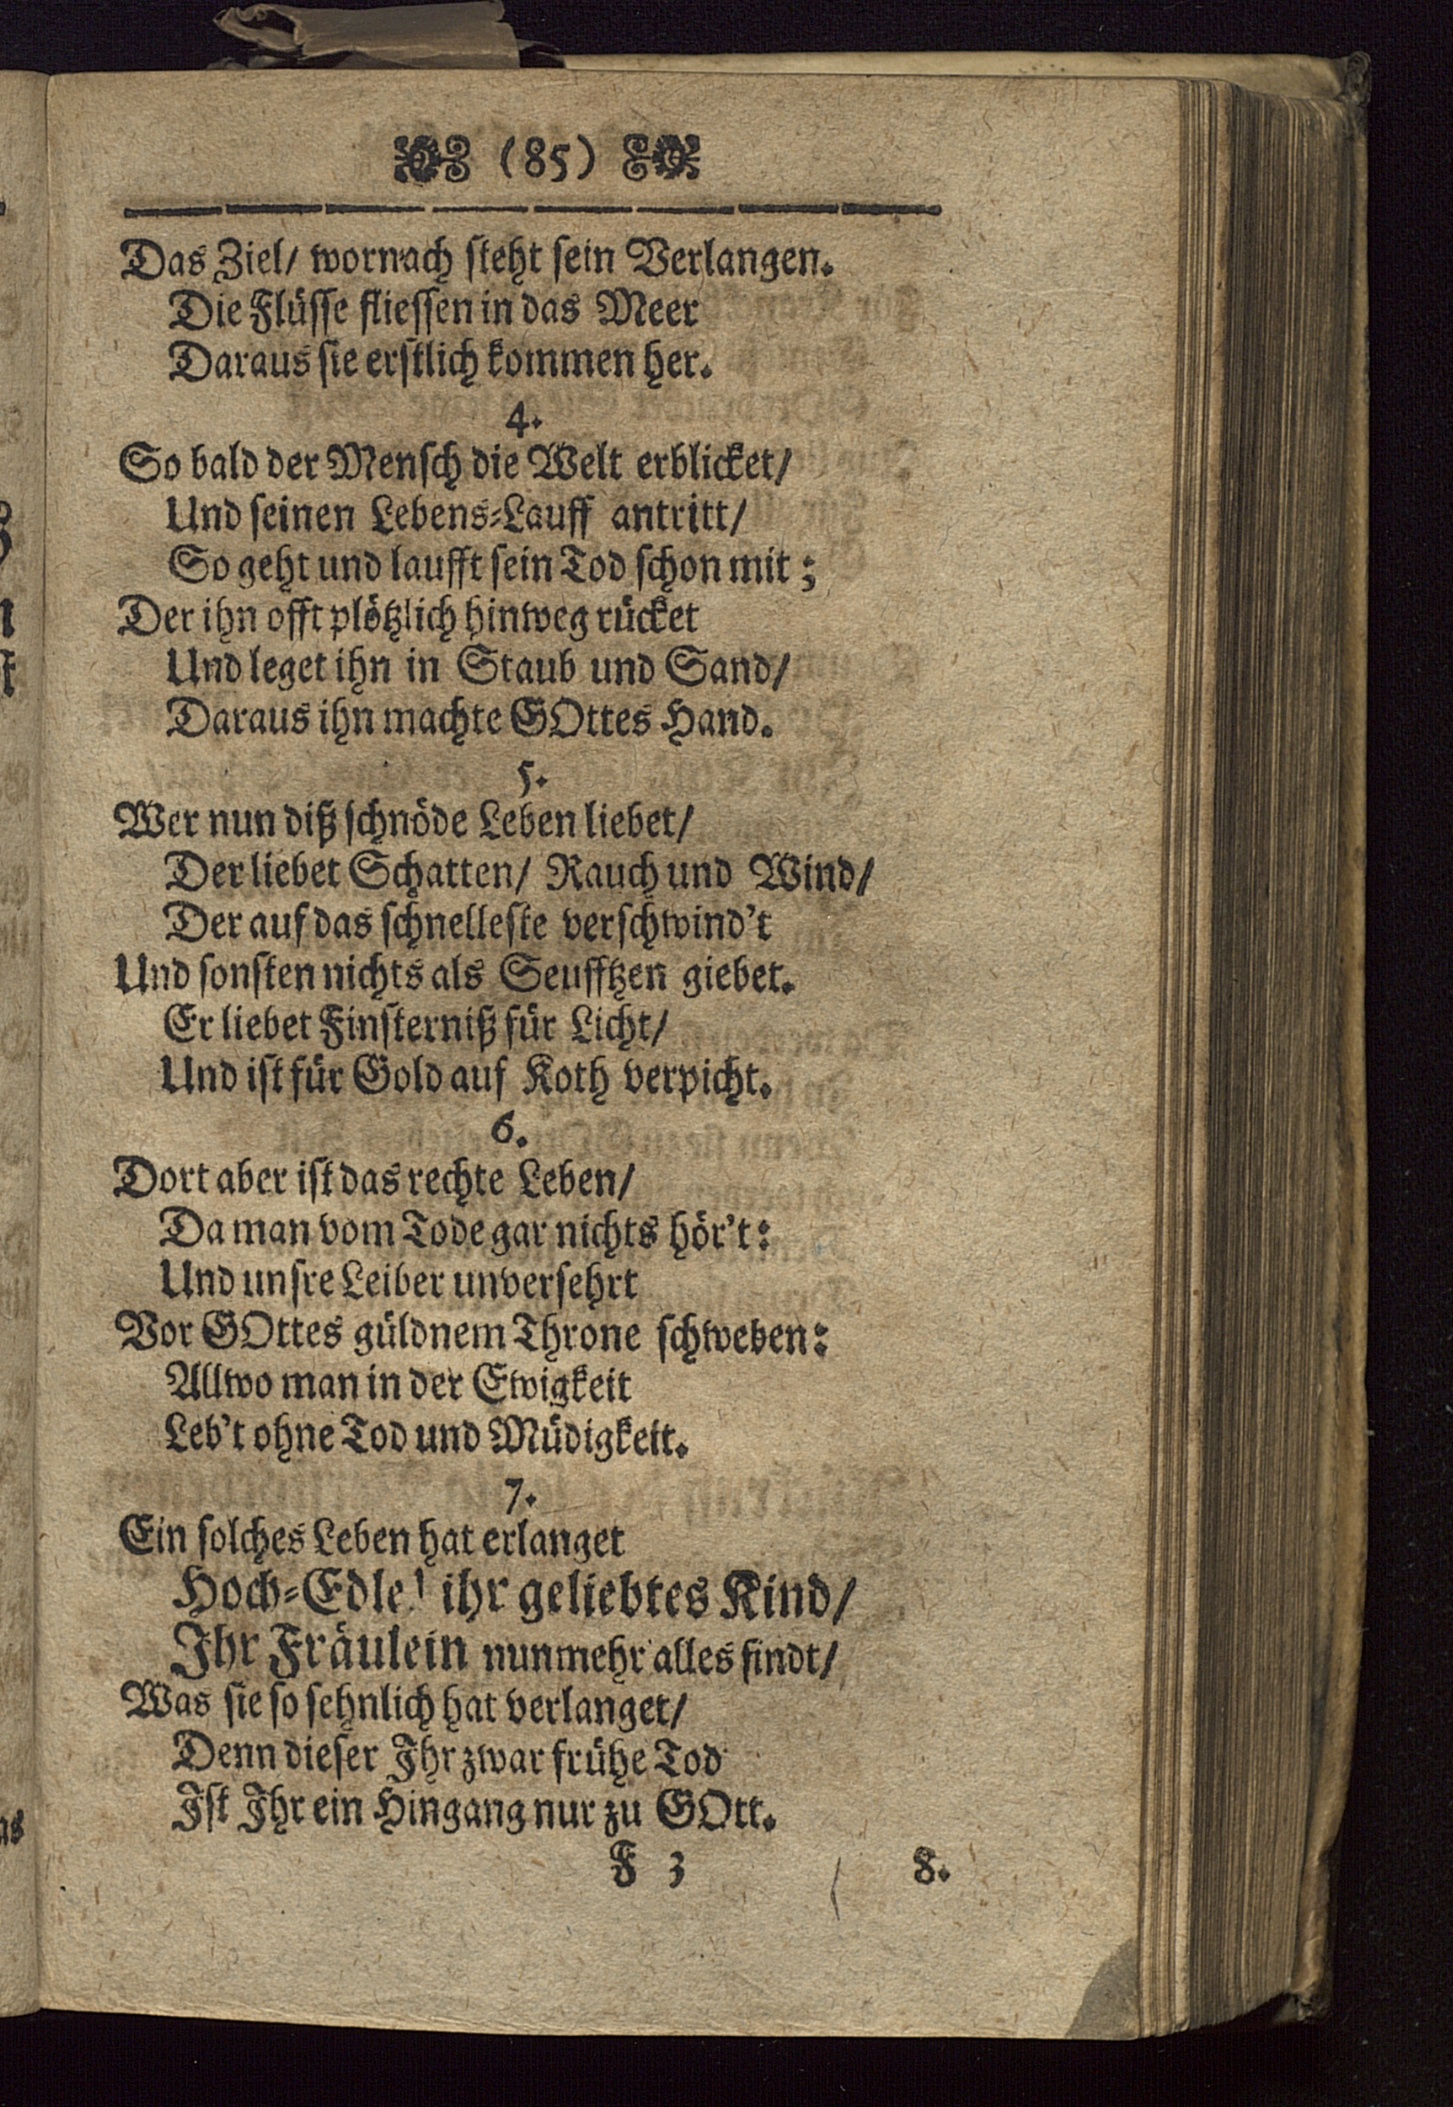 (85)
Das Ziel/ wornach steht sein Verlangen.
Die Flüsse fliessen in das Meer
Daraus sie erstlich kommen her.
4.
So bald der Mensch die Welt erblicket/
Und seinen Lebens-Lauff antritt/
So geht und laufft sein Tod schon mit;
Der ihn offt plötzlich hinweg rücket
Und leget ihn in Staub und Sand/
Daraus ihn machte GOttes Hand.
5.
Wer nun diß schnöde Leben liebet/
Der liebet Schatten/ Rauch und Wind/
Der auf das schnelleste verschwind't
Und sonsten nichts als Seufftzen giebet.
Er liebet Finsterniß für Licht/
Und ist für Gold auf Koth verpicht.
6.
Dort aber ist das rechte Leben/
Da man vom Tode gar nichts hör't:
Und unsre Leiber unversehrt
Vor GOttes güldnem Throne schweben:
Allwo man in der Ewigkeit
Leb't ohne Tod und Müdigkeit.
7.
Ein solches Leben hat erlanget
Hoch-Edle! ihr geliebtes Kind/
Ihr Fräulein nunmehr alles findt/
Was sie so sehnlich hat verlanget/
Denn dieser Ihr zwar frühe Tod
Ist Ihr ein Hingang nur zu GOtt.
F 3 8.